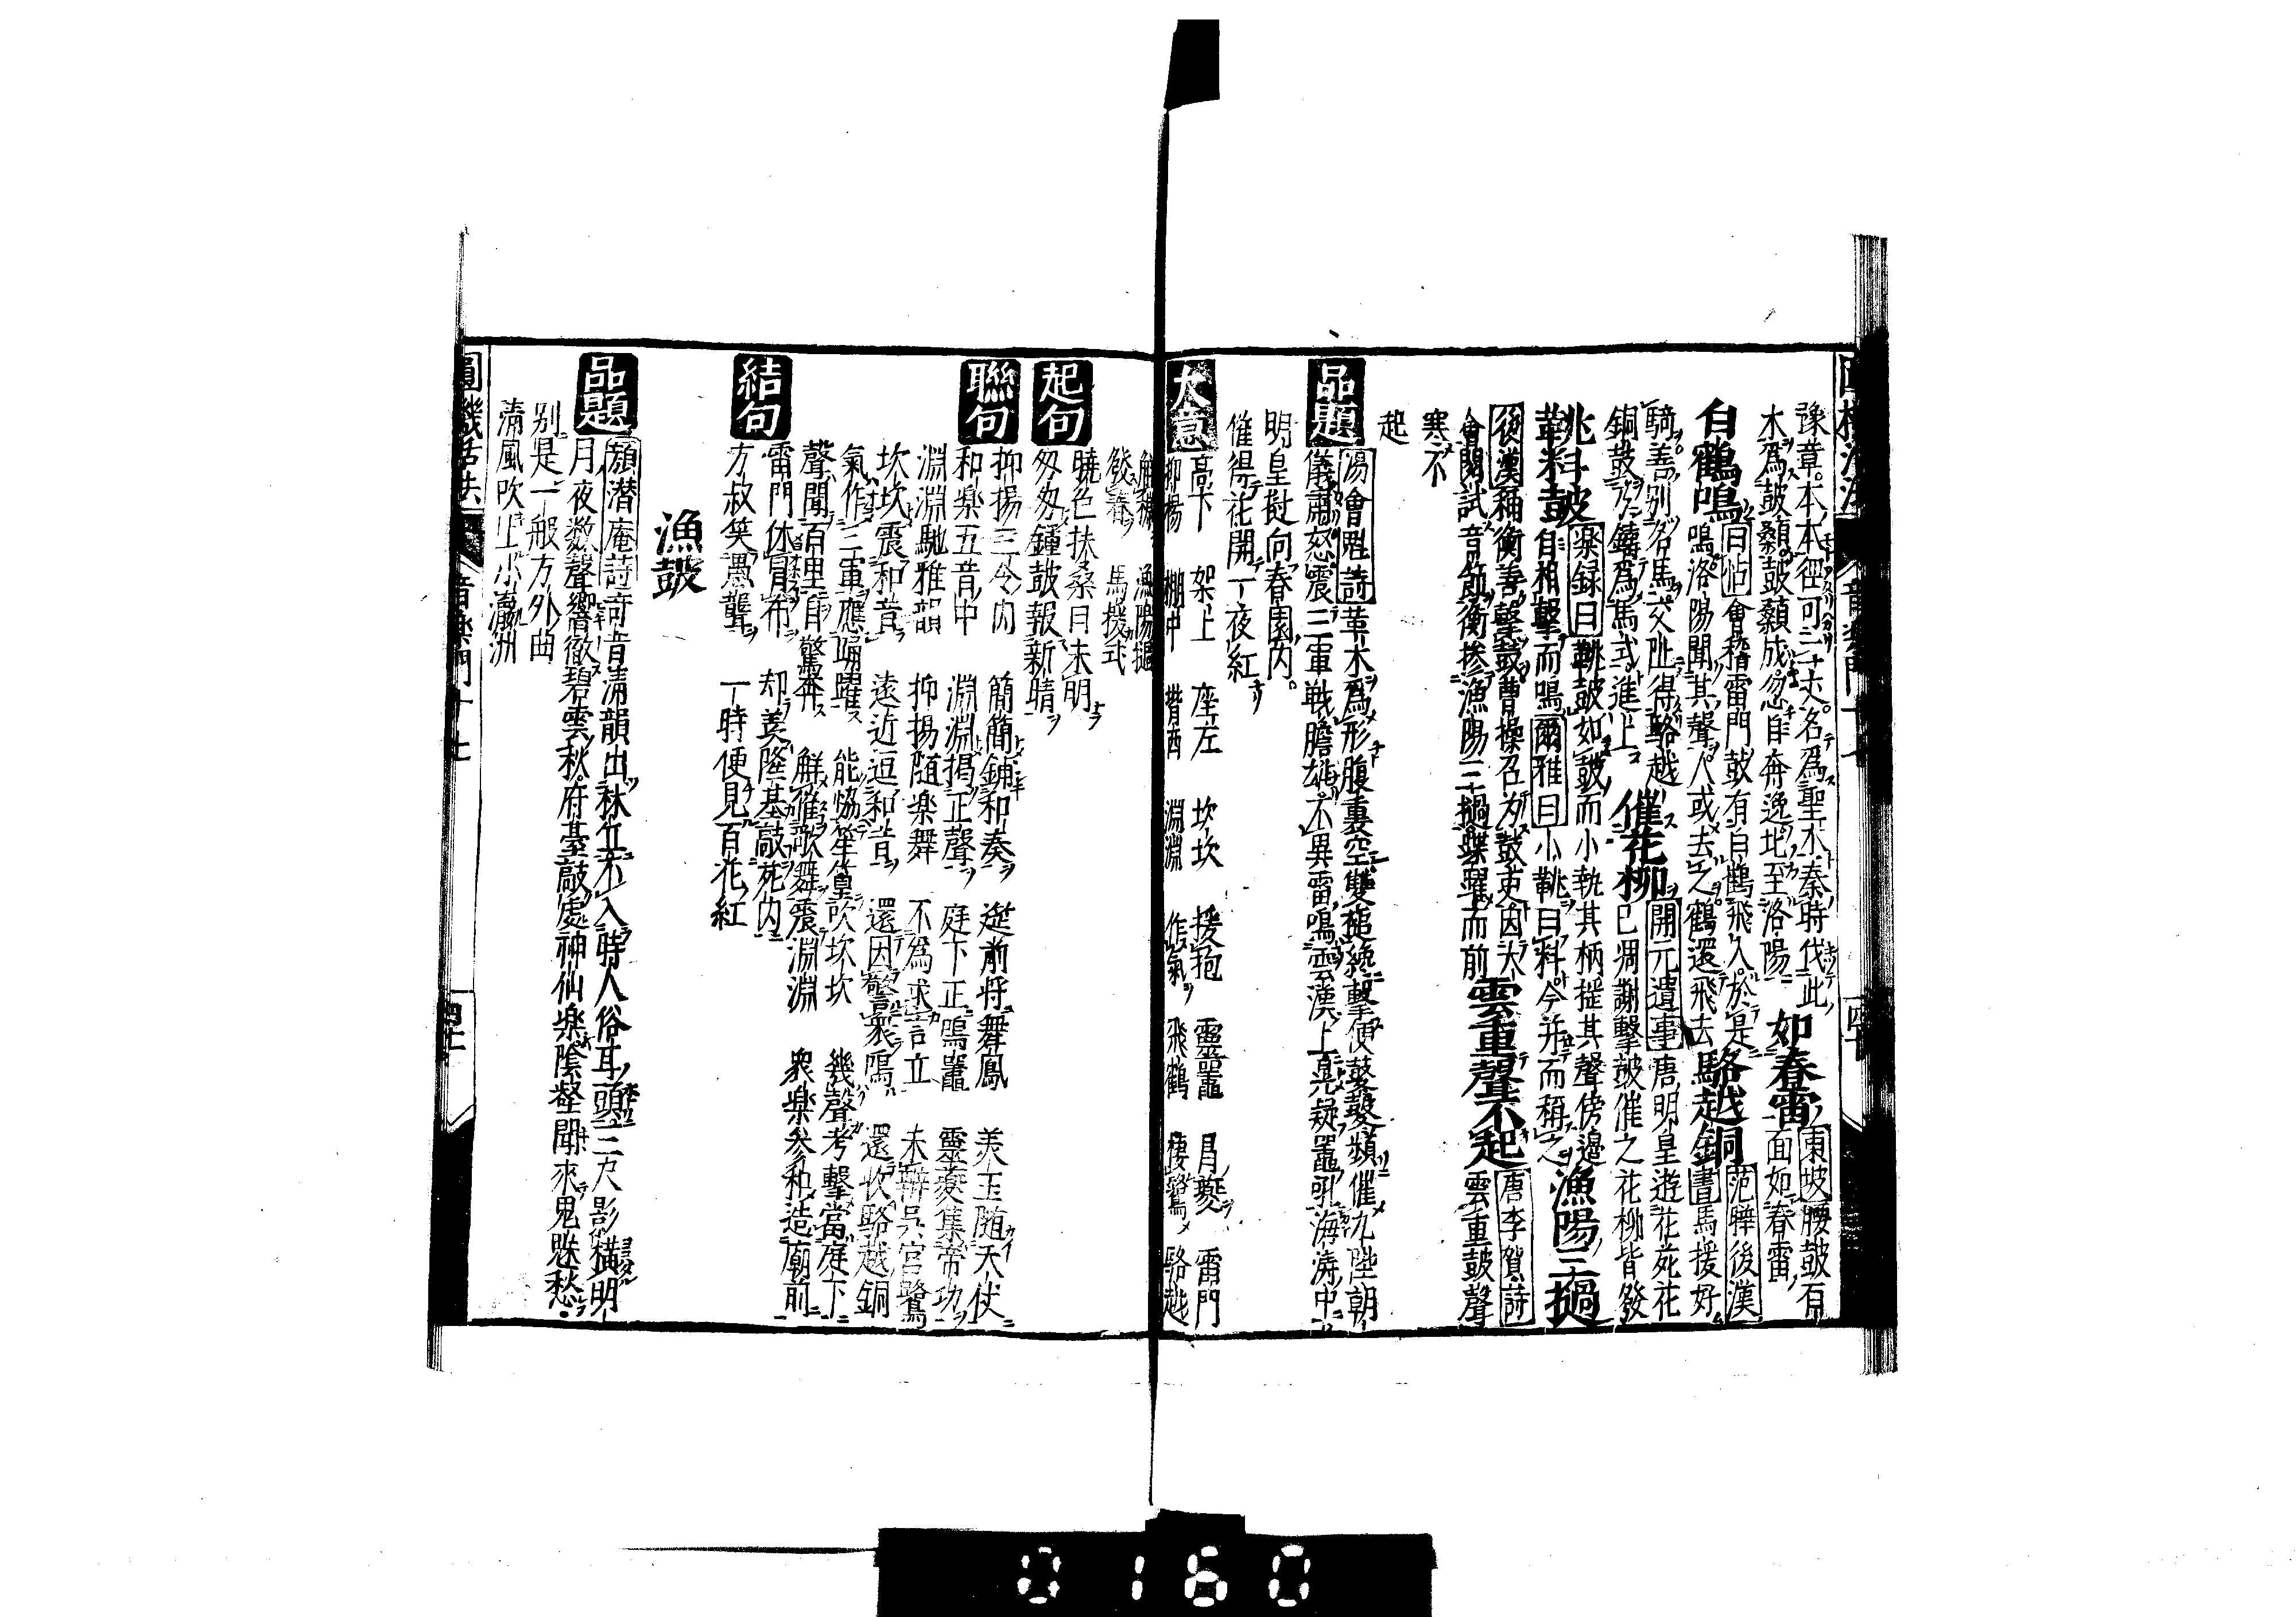 豫章。本木徑可二丈。名爲聖木。秦時伐此
木爲鼓顙。鼓顙成忽自奔逸。北至洛陽 如春雷 東坡腰鼓百
面如春雷
白鶴鳴 白帖會稽雷門鼓有白鶴飛入於是
鳴洛陽聞其聲人或去之鶴還飛去 駱越銅 范曄後漢
書馬援好
騎善別名馬交趾得駱越
銅鼓乃鑄爲馬式進上 催花柳 開元遺事唐明皇遊花苑花
已凋謝擊鼓催之花柳皆發
鞉料鼓 樂録曰鞉鼓如鼓而小執其柄搖其聲傍邊
自相擊而鳴爾雅曰小鞉曰料今并而稱之 漁陽三撾
後漢稱衡善擊鼓曹操召为鼓吏因大
會閱試音節衡摻漁陽三撾蹀躍而前 雲重聲不起 唐李賀詩
雲重鼓聲
寒不
起
品題 湯會魁詩革木爲形腹裏空雙槌纔擊便鼕鼕頻催九陛朝
儀肅怒震三軍戦膽雄不異雷鳴雲漢上晃疑鼉吼海濤中
明皇撾向春園内
催得花開一夜紅
大意 高下 架上 座左 坎坎 援抱 靈鼉 月夔 雷門
抑揚 棚中 堦西 淵淵 作氣 飛鶴 棲鷺 駱越
漁陽撾
發春 馬援式
起句 曉色扶桑日未明
匆匆鐘鼓報新晴
聯句 抑揚三令内 簡簡鋪和奏 筵前将舞鳳 羙玉随天仗
和樂五音中 淵淵揭正聲 庭下正鳴鼉 靈夔集帝功
淵淵馳雅韻 抑揚随樂舞 不爲求言立 未辭呉宮鷺
坎坎震和音 遠近逗和音 還因警衆鳴 還收駱越銅
氣作三軍應踊躍 能恊笙簧吹坎坎 幾聲考擊當庭下
聲聞百里自驚奔 觧催歌舞震淵淵 衆樂参和造廟前
結句 雷門休冐布 却羙隆基敲苑内
方叔笑愚聾 一時便見百花紅
漁鼓
品題 顔潜庵詩奇音清韻出林丘不入時人俗耳頭三尺影橫明
月夜數聲響徹碧雲秋府臺敲處神仙樂陰壑聞來鬼魅愁
別是一般方外曲
清風吹上小瀛洲
圓機活法 音樂門十七
0160